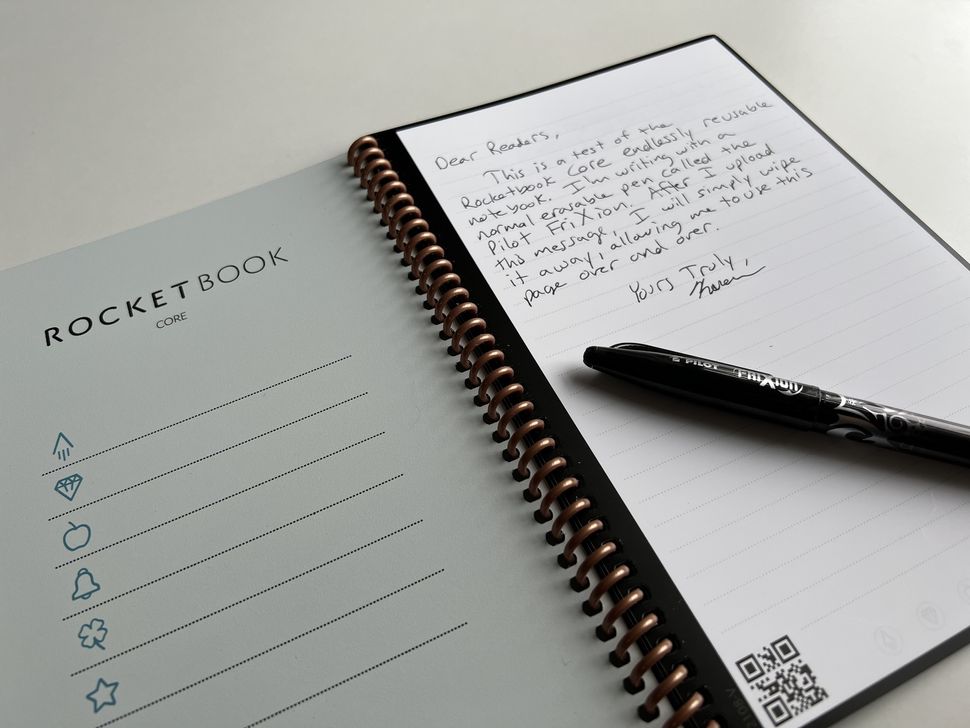 ROCKETBOOK
CORE
Dear Readers,
This is a test of the
Rocketbook Core endlessly reusable
notebook. I'm writing with a
normal erasable pen called the
Pilot FriXion. After I upload
this message, I will simply wipe
it away, allowing me to use this
page over and over.
Yours Truly,
PILOT FRIXION